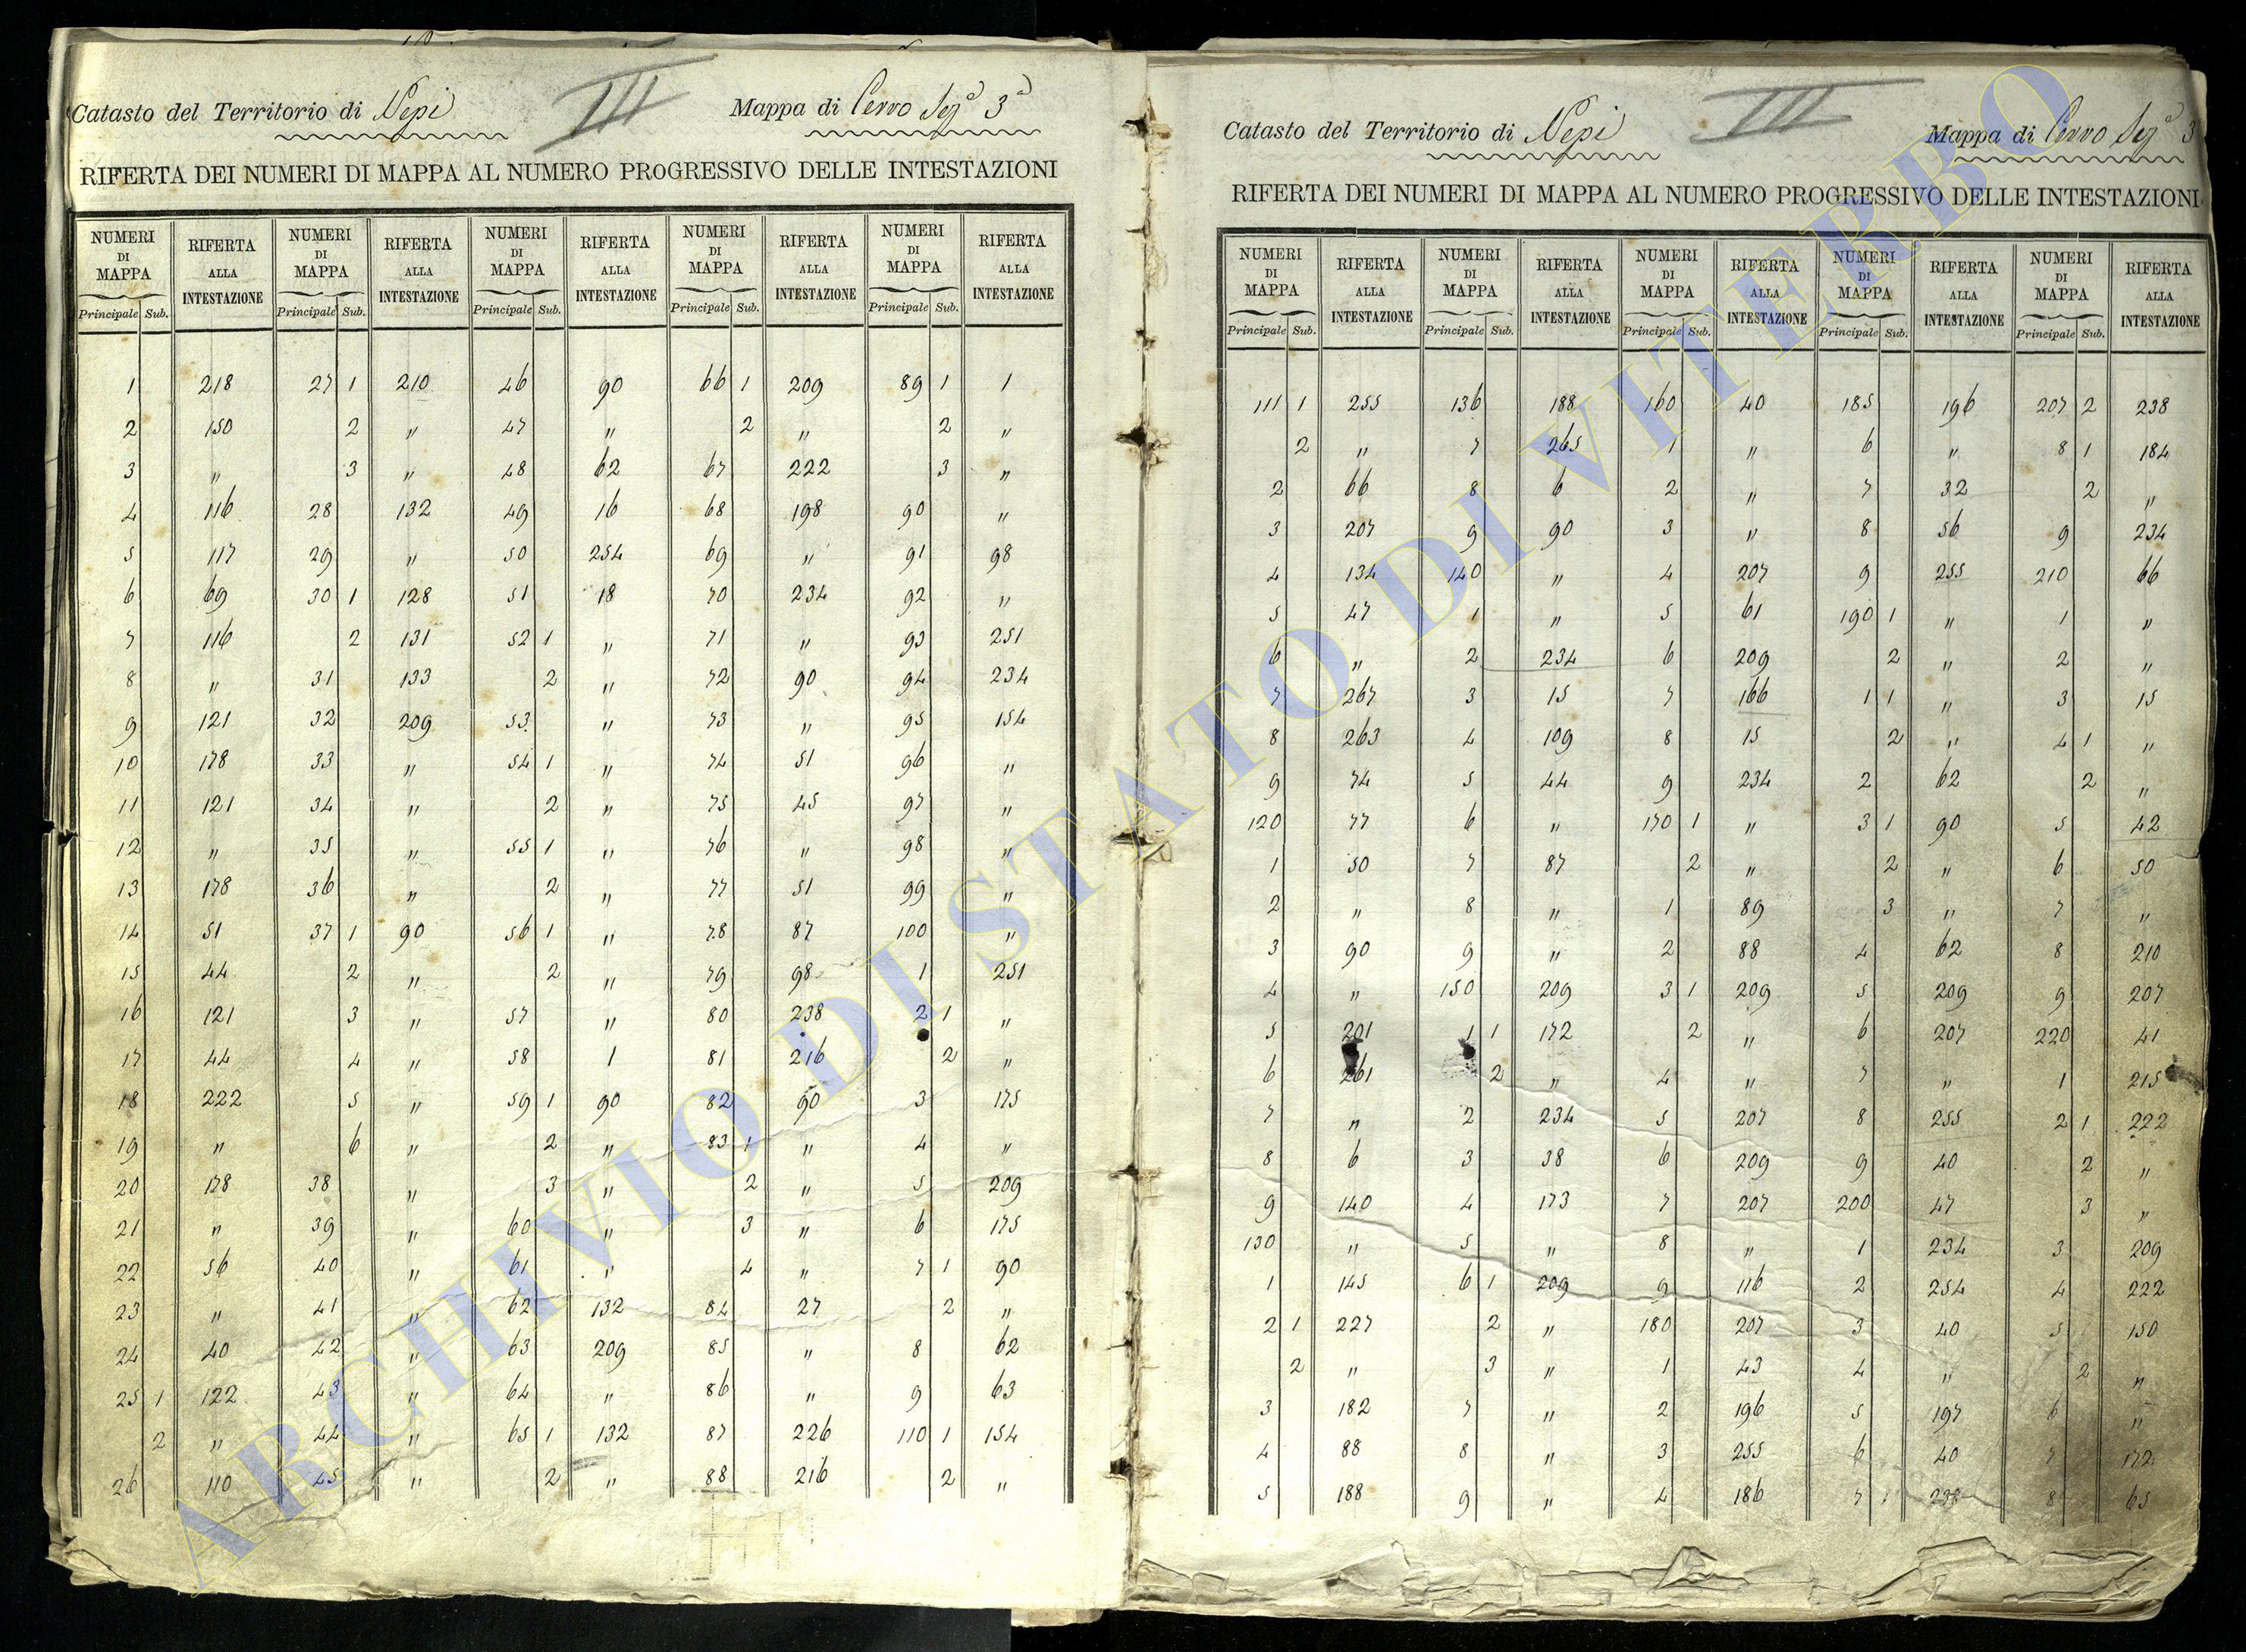 Catasto del Territorio di Nepi III Mappa di Cervo Sez.ª 3ª
RIFERTA DEI NUMERI DI MAPPA AL NUMERO PROGRESSIVO DELLE INTESTAZIONI
NUMERI DI MAPPA RIFERTA ALLA INTESTAZIONE NUMERI DI MAPPA RIFERTA ALLA INTESTAZIONE NUMERI DI MAPPA RIFERTA ALLA INTESTAZIONE NUMERI DI MAPPA RIFERTA ALLA INTESTAZIONE NUMERI DI MAPPA RIFERTA ALLA INTESTAZIONE
Principale Sub. Principale Sub. Principale Sub. Principale Sub. Principale Sub.
1 218 27 1 210 46 90 66 1 209 89 1 1
2 150 2 " 47 " 2 " 2 "
3 " 3 " 48 62 67 222 3 "
4 116 28 132 49 16 68 198 90 "
5 117 29 " 50 254 69 " 91 98
6 69 30 1 128 51 18 70 234 92 "
7 116 2 131 52 1 " 71 " 93 251
8 " 31 133 2 " 72 90 94 234
9 121 32 209 53 " 73 " 95 154
10 178 33 " 54 1 " 74 51 96 "
11 121 34 " 2 " 75 45 97 "
12 " 35 " 55 1 " 76 " 98 "
13 178 36 " 2 " 77 51 99 "
14 51 37 1 90 56 1 " 78 87 100 "
15 44 2 " 2 " 79 98 1 251
16 121 3 " 57 " 80 238 2 1 "
17 44 4 " 58 1 81 216 2 "
18 222 5 " 59 1 90 82 90 3 175
19 " 6 " 2 " 83 1 " 4 "
20 178 38 " 3 " 2 " 5 209
21 " 39 " 60 " 3 " 6 175
22 56 40 " 61 " 4 " 7 1 90
23 " 41 " 62 132 84 27 2 "
24 40 42 " 63 209 85 " 8 62
25 1 122 43 " 64 " 86 " 9 63
2 " 44 " 65 1 132 87 226 110 1 154
26 110 45 " 2 " 88 216 2 "
Catasto del Territorio di Nepi III Mappa di Cervo Sez.ª 3
RIFERTA DEI NUMERI DI MAPPA AL NUMERO PROGRESSIVO DELLE INTESTAZIONI
NUMERI DI MAPPA RIFERTA ALLA INTESTAZIONE NUMERI DI MAPPA RIFERTA ALLA INTESTAZIONE NUMERI DI MAPPA RIFERTA ALLA INTESTAZIONE NUMERI DI MAPPA RIFERTA ALLA INTESTAZIONE NUMERI DI MAPPA RIFERTA ALLA INTESTAZIONE
Principale Sub. Principale Sub. Principale Sub. Principale Sub. Principale Sub.
111 1 255 136 188 160 40 185 196 207 2 238
2 " 7 265 1 " 6 " 8 1 184
2 66 8 6 2 " 7 32 2 "
3 207 9 90 3 " 8 56 9 234
4 134 140 " 4 207 9 255 210 66
5 47 1 " 5 61 190 1 " 1 "
6 " 2 234 6 209 2 " 2 "
7 267 3 15 7 166 1 1 " 3 15
8 263 4 109 8 15 2 " 4 1 "
9 74 5 44 9 234 2 62 2 "
120 77 6 " 170 1 " 3 1 90 5 42
1 50 7 87 2 " 2 " 6 50
2 " 8 " 1 89 3 " 7 "
3 90 9 " 2 88 4 62 8 210
4 " 150 209 3 1 209 5 209 9 207
5 201 1 1 172 2 " 6 207 220 41
6 261 2 " 4 " 7 " 1 215
7 " 2 234 5 207 8 255 2 1 222
8 6 3 38 6 209 9 40 2 "
9 140 4 173 7 207 200 47 3 "
130 " 5 " 8 " 1 234 3 209
1 145 6 1 209 9 116 2 254 4 222
2 1 227 2 " 180 207 3 40 5 150
2 " 3 " 1 43 4 " 2 "
3 182 7 " 2 196 5 197 6 "
4 88 8 " 3 255 6 40 7 172
5 188 9 " 4 186 7 1 238 8 65
ARCHIVIO DI STATO DI VITERBO